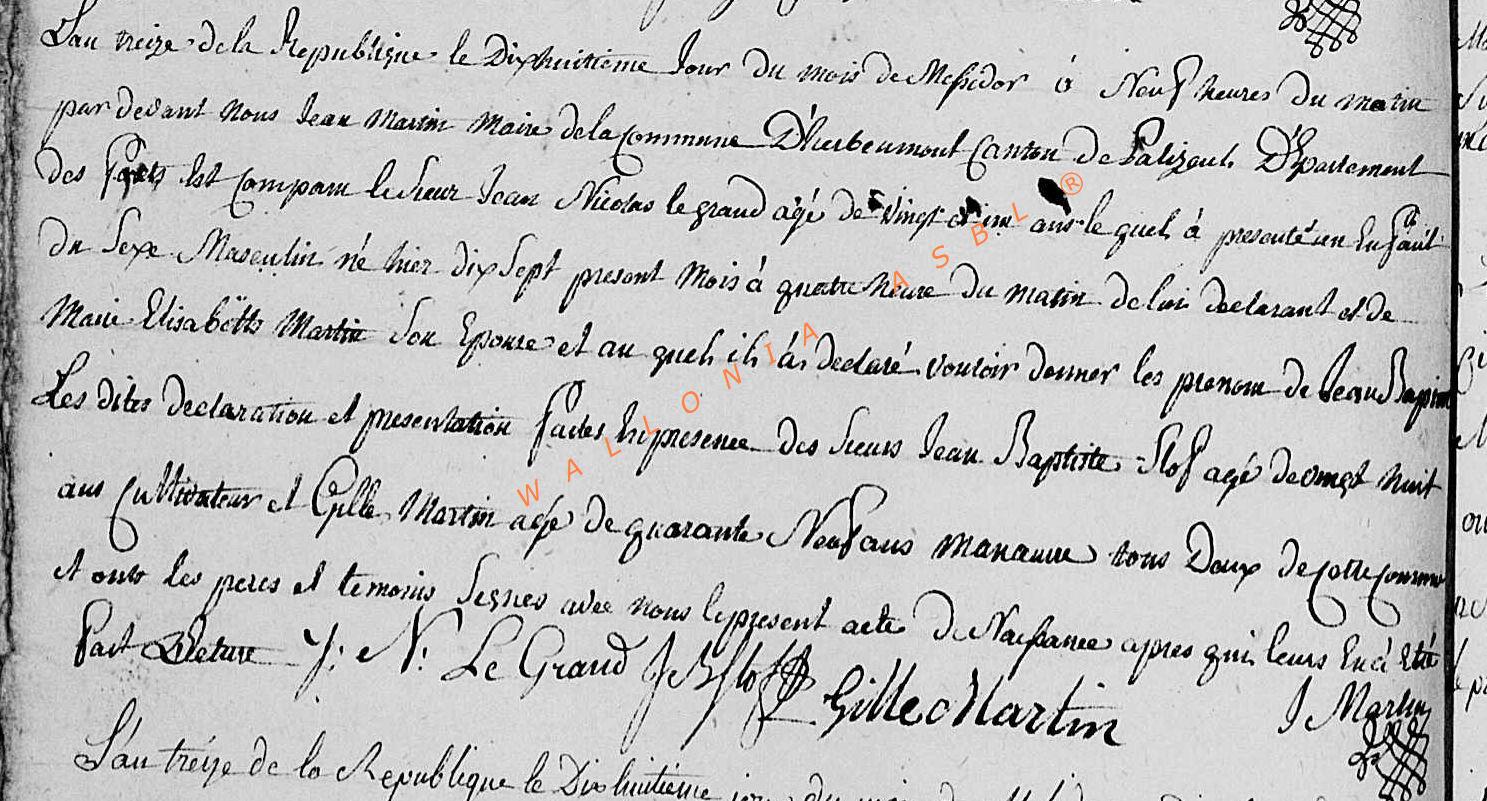 L'an treize de la Republique le Dixhuitieme Jour du mois de Messidor á Neuf heures du matin
par devant nous Jean Martin Maire de la commune D'herbeumont Canton de Palizeul Département
des Forets Est Comparu le Sieur Jean Nicolas le grand agé de vingt et un ans le quel á presenté un Enfant
du Sexe Masculin né hier dix Sept present Mois á quatre heure du matin de lui declarant et de
Marie Elisabeth Martin Son Epouse et au quel il á declaré vouloir donner les prenom de Jean Baptiste
Les dites declaration et presentation faites En presence des Sieurs Jean Baptiste Slof agé de vingt huit
ans Cultivateur et Gille Martin agé de quarante Neuf ans manœuvre tous Deux de cette commune
et ont les peres et temoins Signés avec nous le present acte de Naissance apres qu'il leurs En á Eté
fait Lecture J: N: Le Grand J B Slof Gille Martin J Martin
L'an treize de la Republique le Dixhuitieme jour du mois
WALLONIA ASBL ®